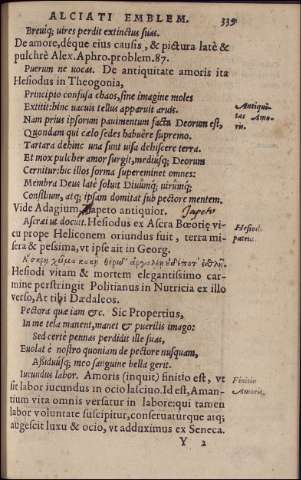 ALCIATI EMBLEM. 339
Breuiq; uires perdit extinctus suas.
De amore, déque eius causis, & pictura latè &
pulchrè Alex. Aphro. problem. 87.
Puerum ne uocas. De antiquitate amoris ita
Hesiodus in Theogonia,
Principio confusa chaos, sine imagine moles
Extitit: hinc uacuis tellus apparuit aruis. Antiqui-
tas Amo-
ris.
Nam prius ipsorum pauimentum facta Deorum est,
Quondam qui cælo sedes habuêre supremo.
Tartara dehinc una sunt uisa dehiscere terra.
Et mox pulcher amor surgit, mediusq; Deorum
Cernitur: hic illos forma supereminet omnes:
Membra Deûm latè soluit Diuûmq; uirûmq;
Consilium, atq; ipsam domitat sub pectore mentem.
Vide Adagium, Iapeto antiquior. Iapeto
Ascræi ut docuit. Hesiodus ex Ascra Bœotię vi- Hesiodi
patria.
cu prope Heliconem oriundus fuit, terra mi-
sera & pessima, vt ipse ait in Georg.
Hesiodi vitam & mortem elegantissimo car-
mine perstringit Politianus in Nutricia ex illo
verso, At tibi Dædaleos.
Pectora quæ iam &c. Sic Propertius,
In me tela manent, manet & puerilis imago:
Sed certè pennas perdidit ille suas,
Euolat è nostro quoniam de pectore nusquam,
Assiduusq; meo sanguine bella gerit.
Iucundus labor. Amoris (inquit) finitio est, vt Finitio
Amoris.
sit labor iucundus in ocio lasciuo. Id est, Aman-
tium vita omnis versatur in labore: qui tamen
labor voluntate suscipitur, conseruaturque atq;
augescit luxu & ocio, vt adduximus ex Seneca.
Y 2